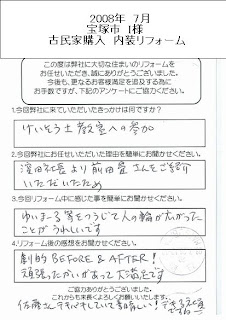 2008年 7月
宝塚市 I様
古民家購入 内装リフォーム
この度は弊社に大切な住まいのリフォームを
お任せいただき、誠にありがとうございました。
今後も、更なるお客様満足を追及する為に
お手数ですが、下記のアンケートにご協力ください。
1.今回弊社に来ていただいたきっかけは何ですか？
けいそう土教室への参加
2.今回弊社にお任せいただいた理由を簡単にお聞かせください。
濱田社長より前田畳さんをご紹介
いただいたため
3.今回リフォーム中に感じた事を簡単にお聞かせください。
ゆいまーる等をつうじて人の輪が広がった
ことがうれしいです
4.リフォーム後の感想をお聞かせください。
劇的BEFORE & AFTER!
頑張ったかいがあって大満足です
ご協力ありがとうございました。
これからも末長くよろしくお願いいたします。
佐藤さん